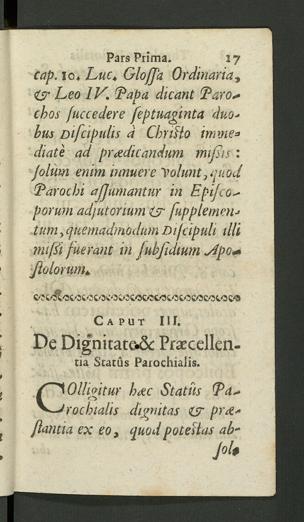 Pars Prima. 17
cap. 10. Luc. Glossa Ordinaria,
& Leo IV. Papa dicant Paro-
chos succedere septuaginta duo-
bus Discipulis à Christo imme-
diatè ad prædicandum missis:
solum enim innuere volunt, quod
Parochi assumantur in Episco-
porum adjutorium & supplemen-
tum, quemadmodum Discipuli illi
missi fuerant in subsidium Apo-
stolorum.
CAPUT III.
De Dignitate & Præcellen-
tia Statûs Parochialis.
COlligitur hæc Statûs Pa-
rochialis dignitas & præ-
stantia ex eo, quod potestas ab-
sol-